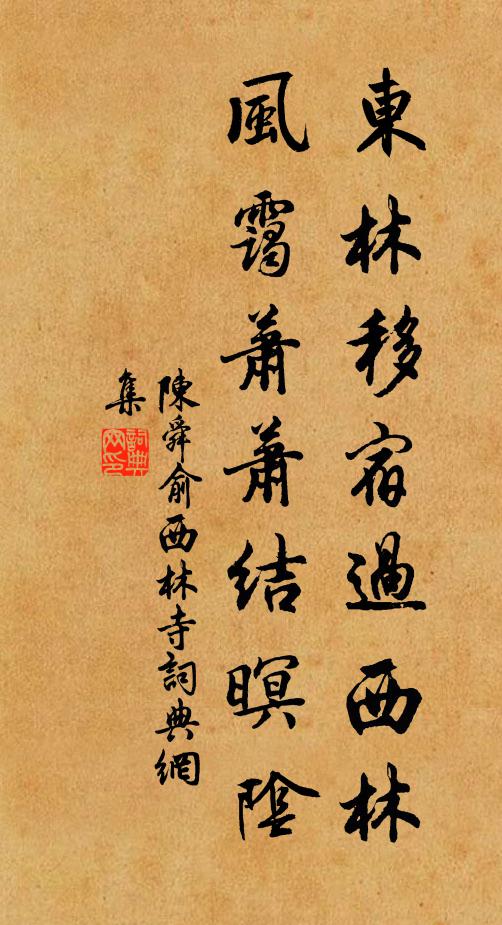 東林移宿過西林
風靄蕭蕭結暝陰
陳舜俞西林寺詞典網
集
詞典网印